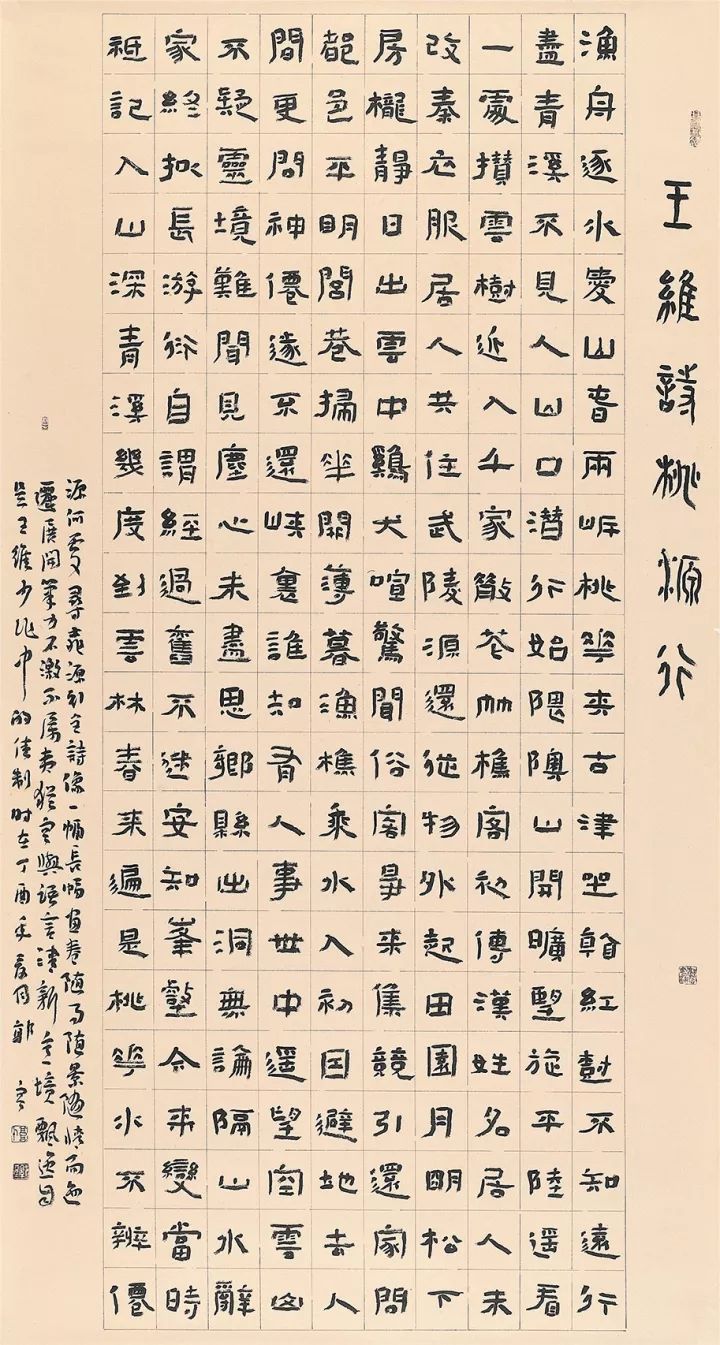 王維詩桃源行
漁舟逐水愛山春兩岸桃花夾古津坐看紅樹不知遠行
盡青溪不見人山口潛行始隈隩山開曠望旋平陸遙看
一處攢雲樹近入千家散花竹樵客初傳漢姓名居人未
改秦衣服居人共住武陵源還從物外起田園月明松下
房櫳靜日出雲中鷄犬喧驚聞俗客爭來集競引還家問
都邑平明閭巷掃花開薄暮漁樵乘水入初因避地去人
間更問神僊遂不還峽裏誰知有人事世中遙望空雲山
不疑靈境難聞見塵心未盡思鄉縣出洞無論隔山水辭
家終擬長游衍自謂經過舊不迷安知峯壑今來變當時
祗記入山深青溪幾度到雲林春來遍是桃花水不辨僊
源何處尋桃源行全詩像一幅長幅畫卷隨隨景隨情而迤
邐展開筆力不激不厲夷猶語言清新意境飄逸自
是王維少作中的佳制時在丁酉年